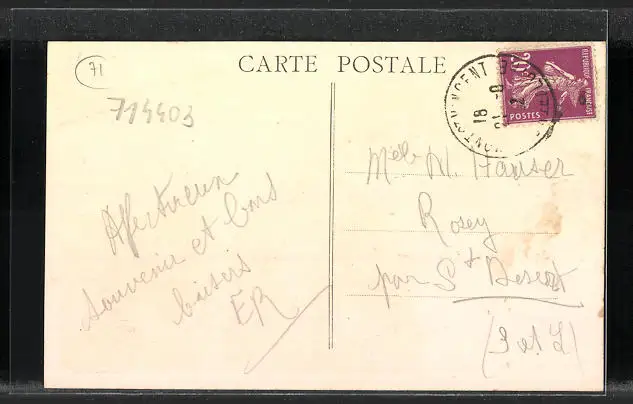 71
CARTE POSTALE
714403
Affectueux
souvenir et bons
baisers
ER
20c
REPUBLIQUE FRANÇAISE
POSTES
18
Melle M. Hauser
Rosey
par St Desert
(S et L)